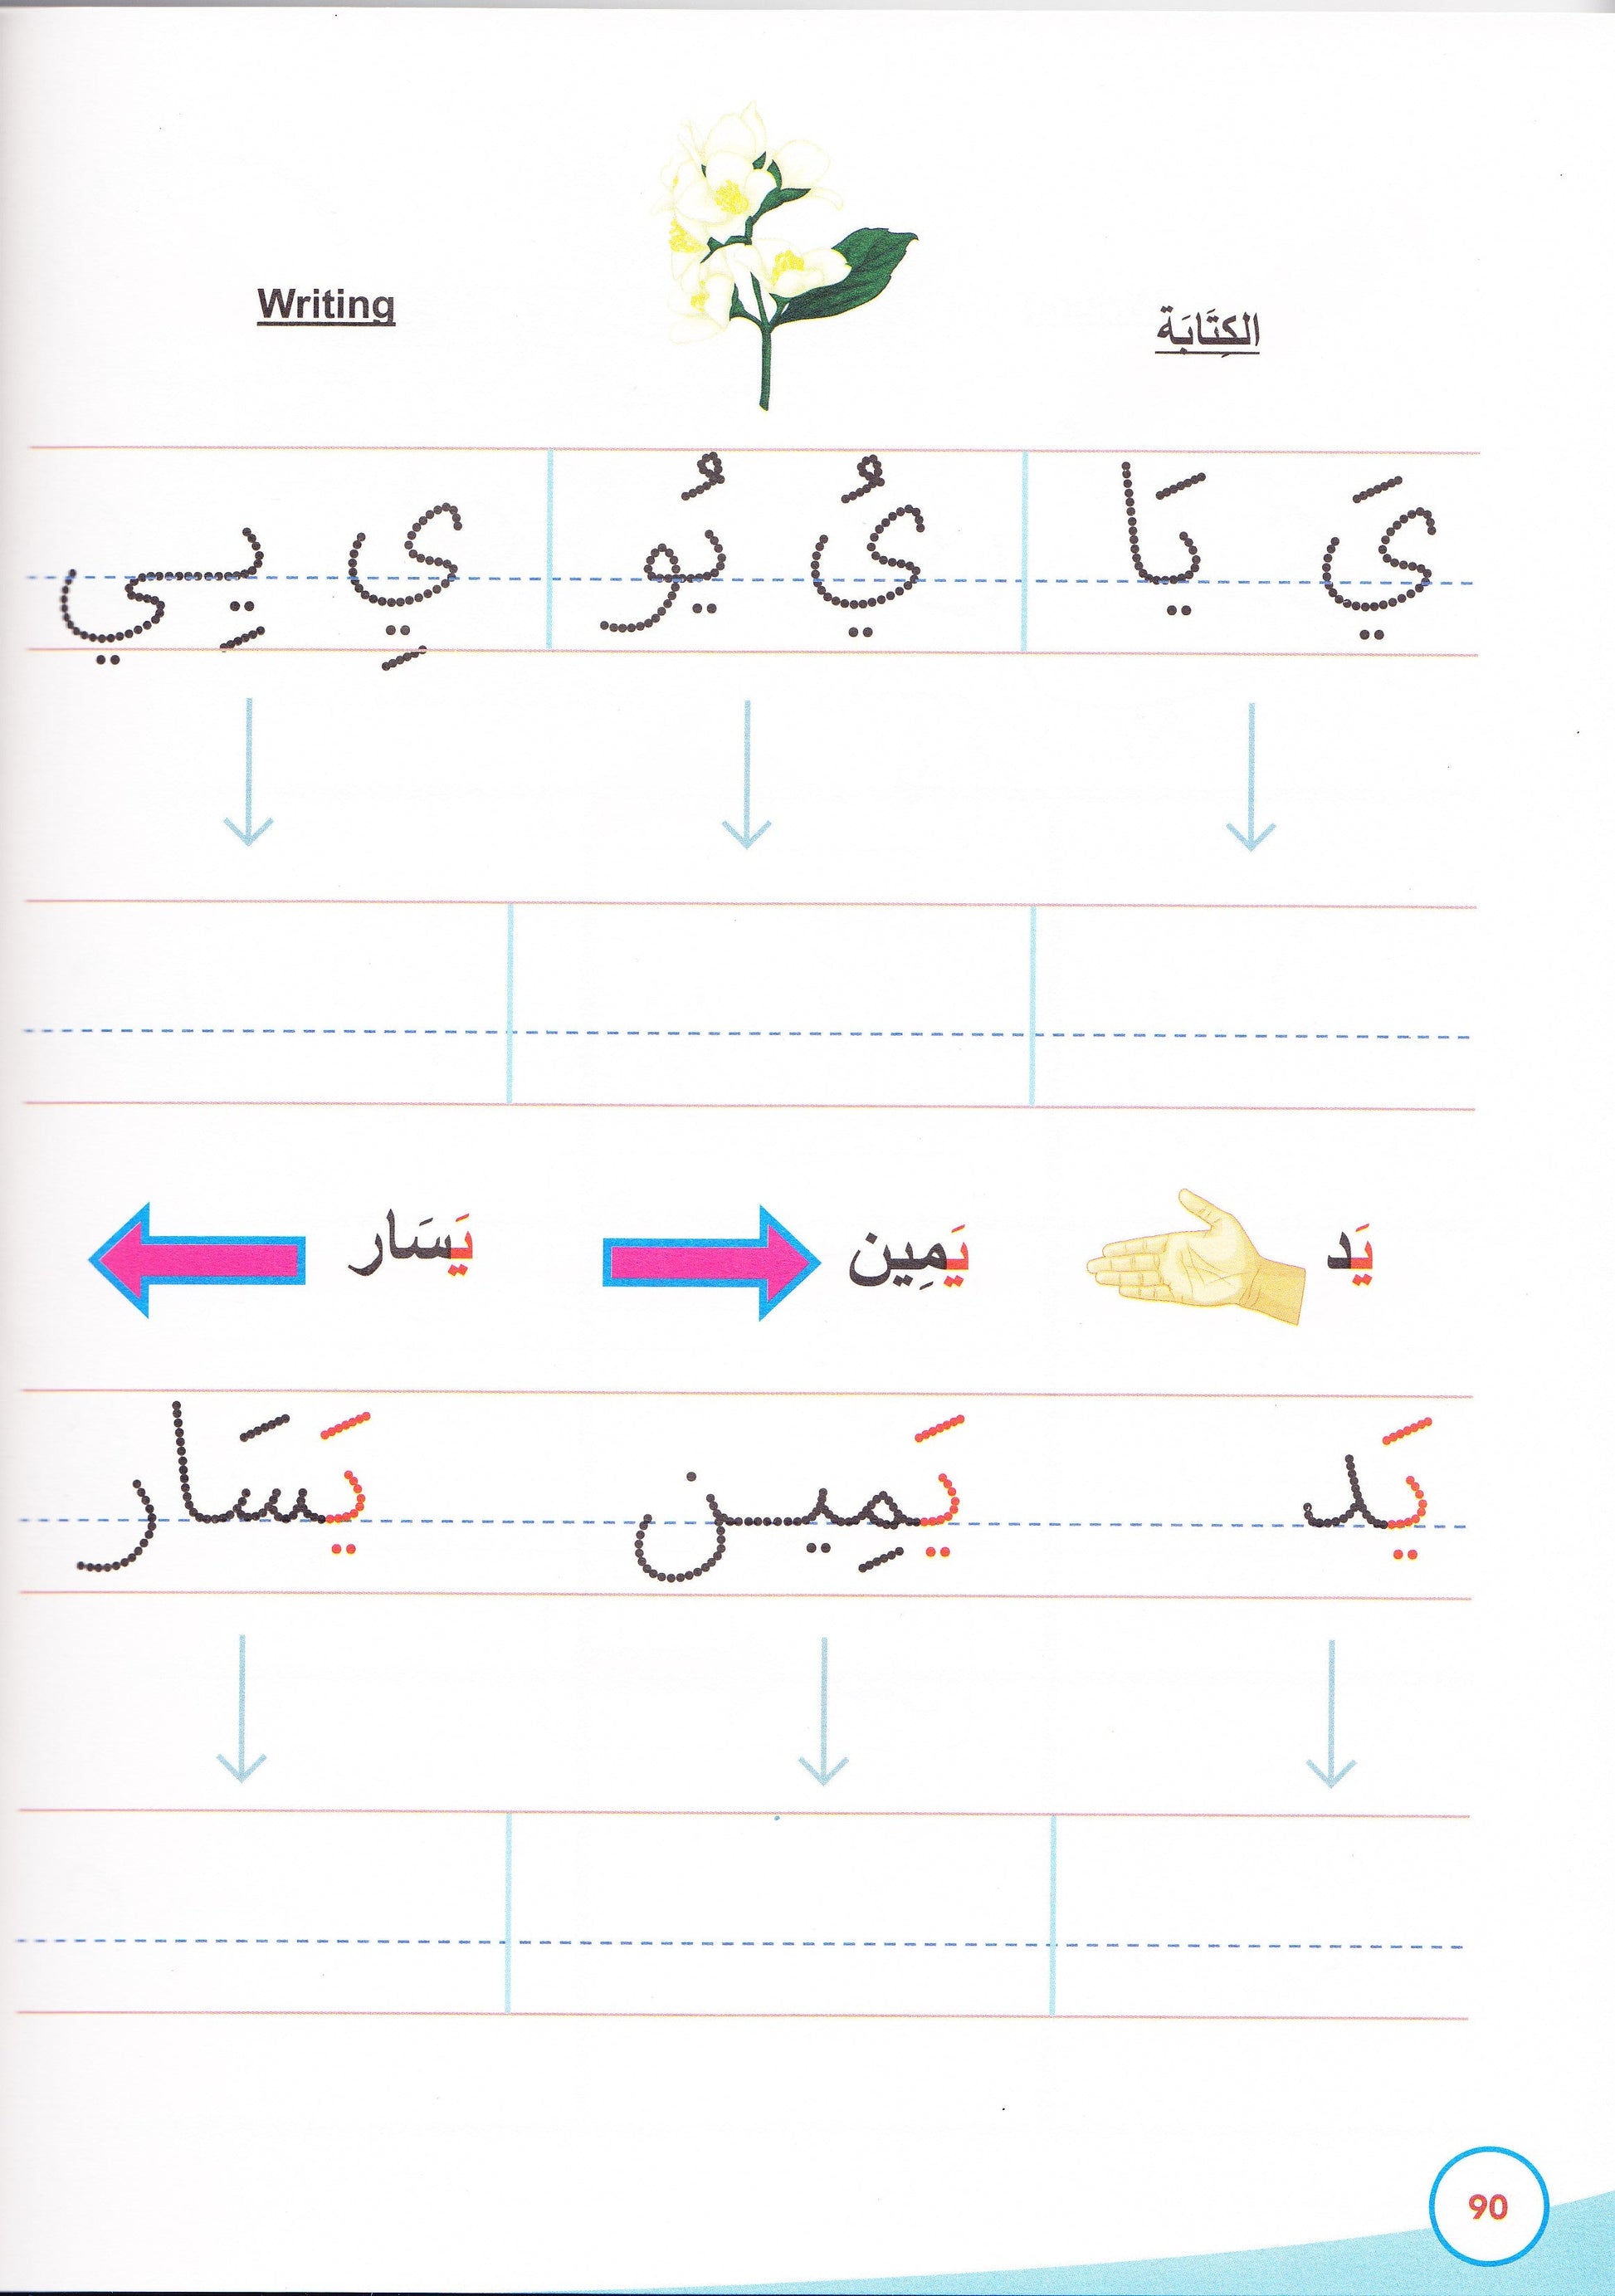 Writing الكِتَابَة
يَ يَا يُ يُو يِ يِيي
يَد يَمِين يَسَار
يَد يَمِين يَسَار
90